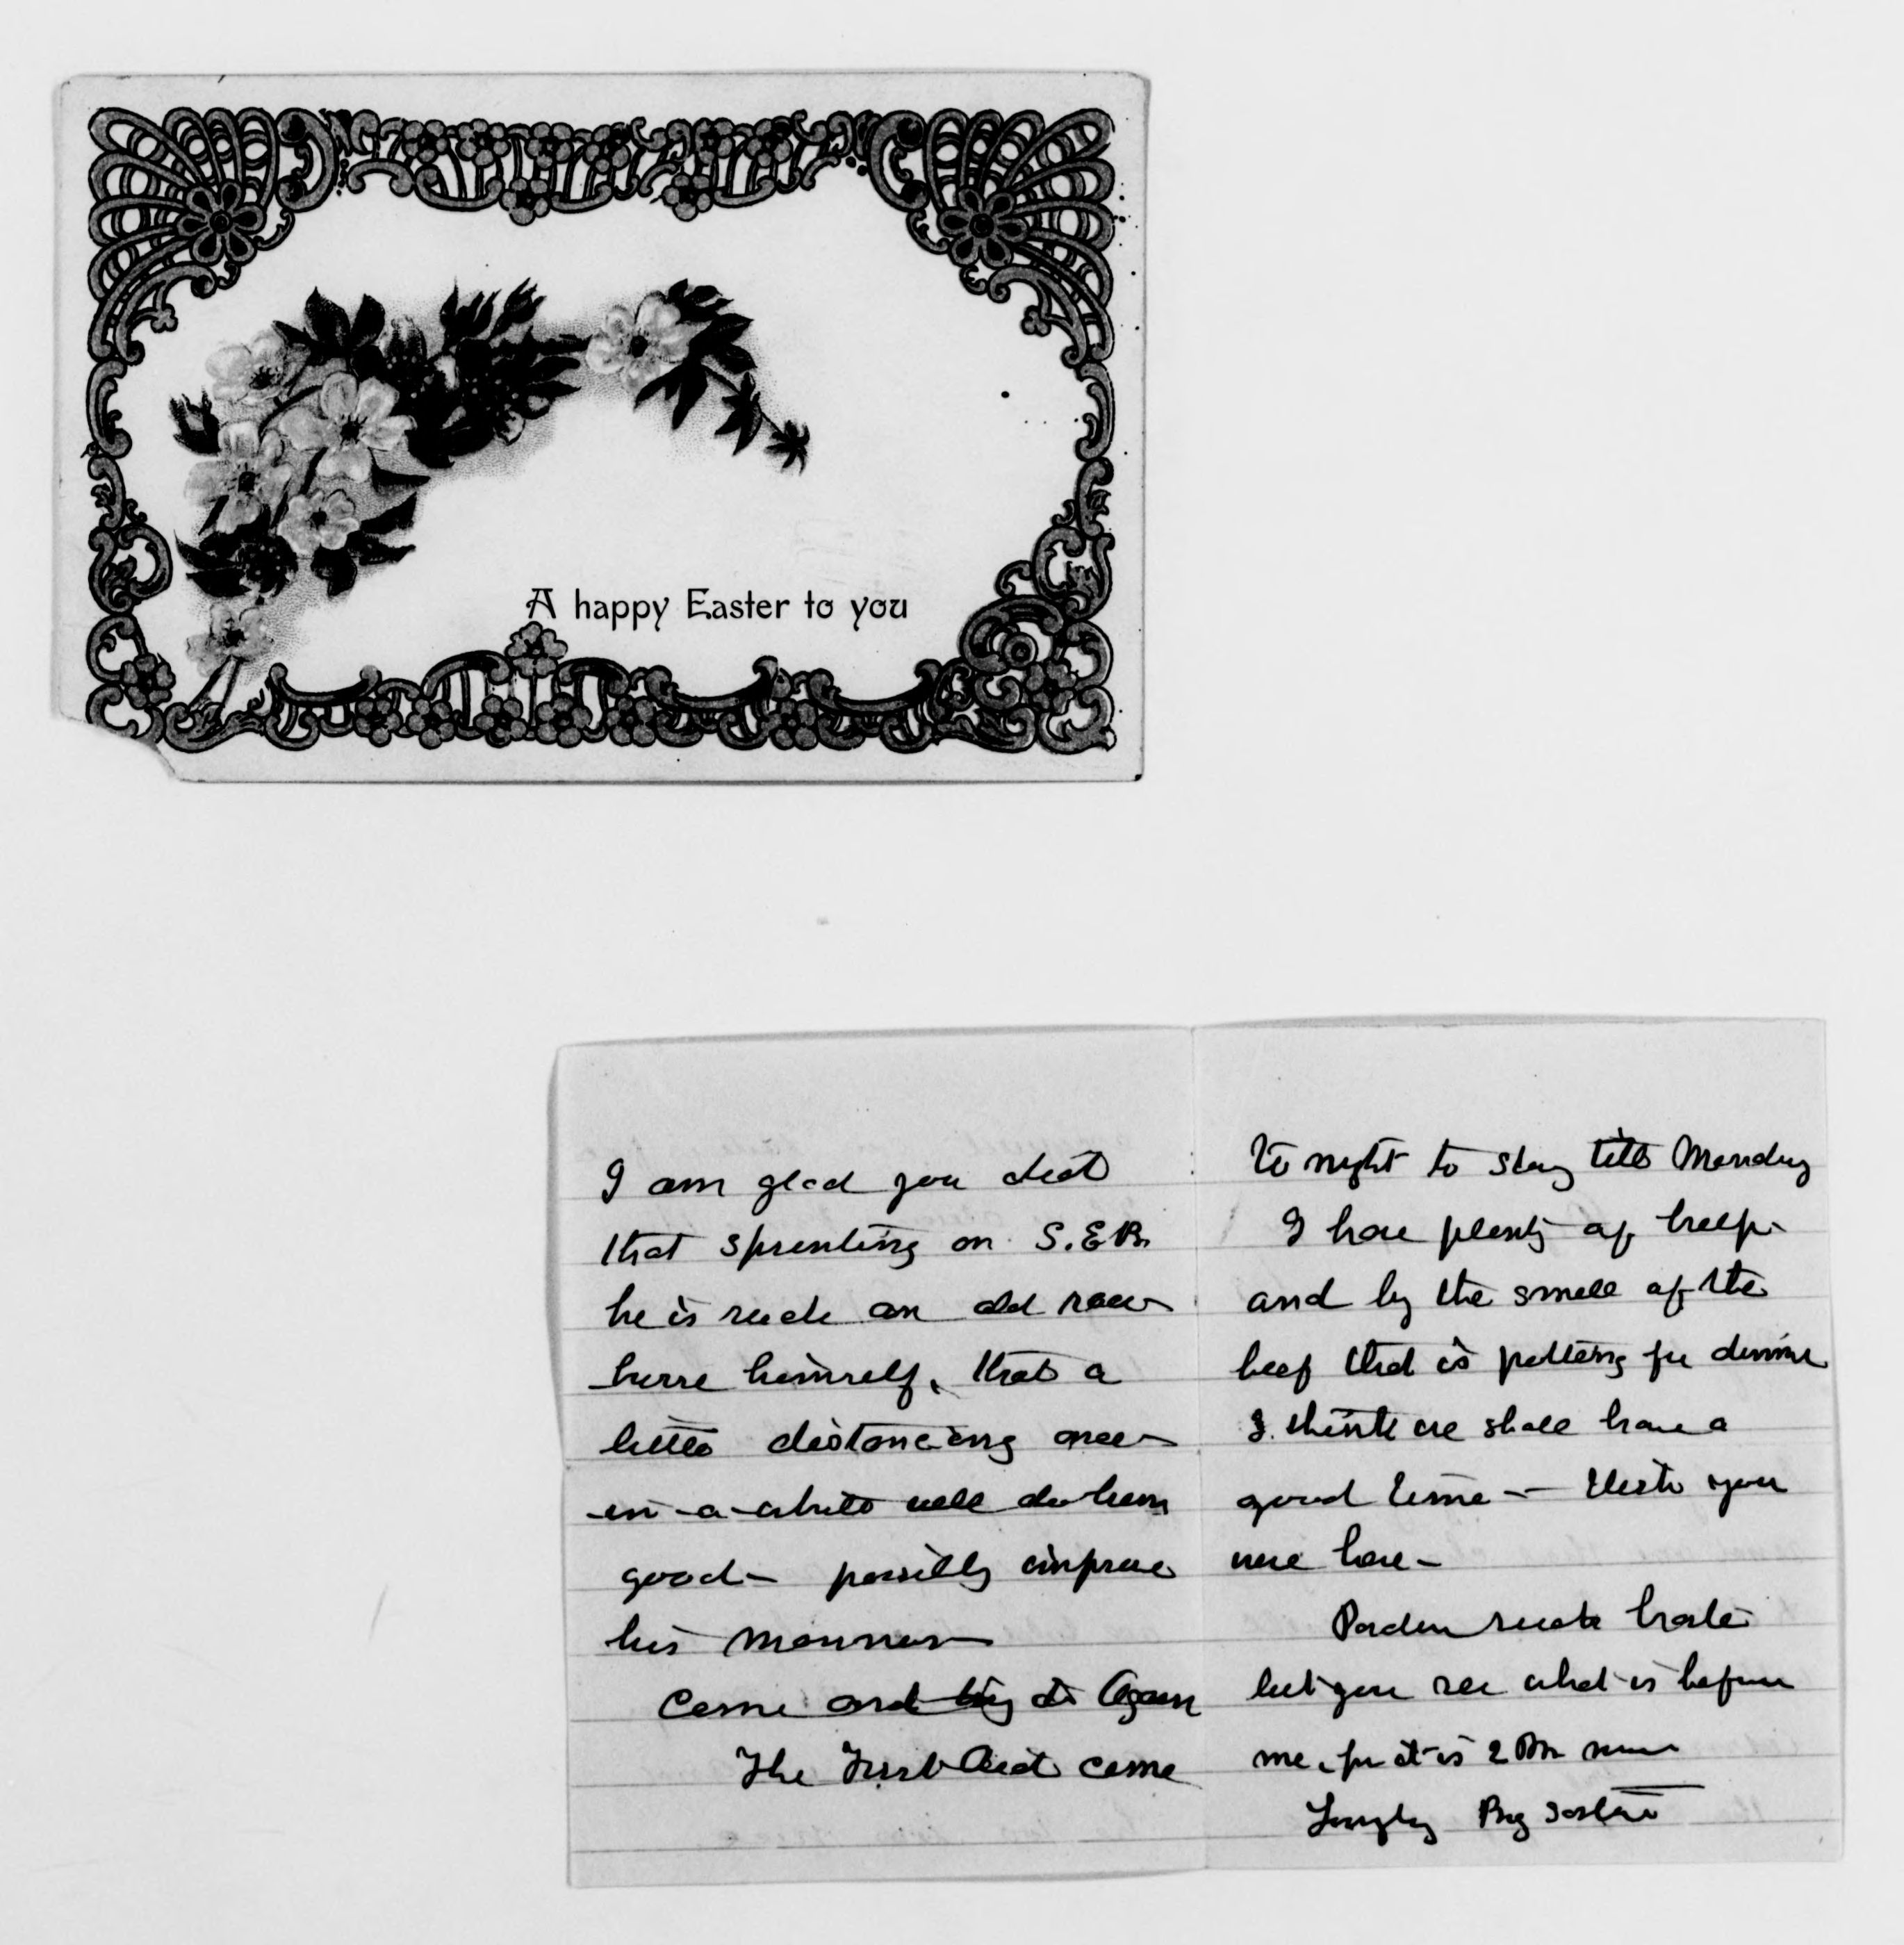 A happy Easter to you
I am glad you did
that sprinting on S.E.B.
he is such an old race
horse himself, that a
little distancing once
in a while will do him
good — possibly improve
his manners
Come and try it Again
The First Aid come
to night to stay till Monday
I have plenty of help
and by the smell of the
beef that is potting for dinner
I think we shall have a
good time — Wish you
were here —
Pardon such haste
but you see what is before
me, for it is 2 PM now
Lovingly Big sister